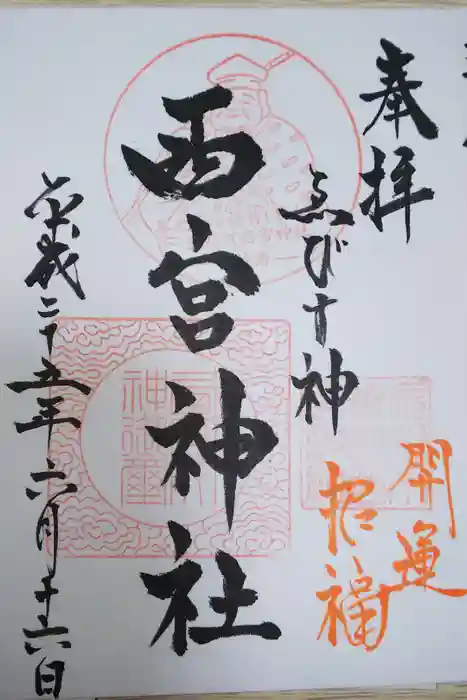 奉拝
ゑびす神
西宮神社
開運
招福
平成二十五年六月十六日